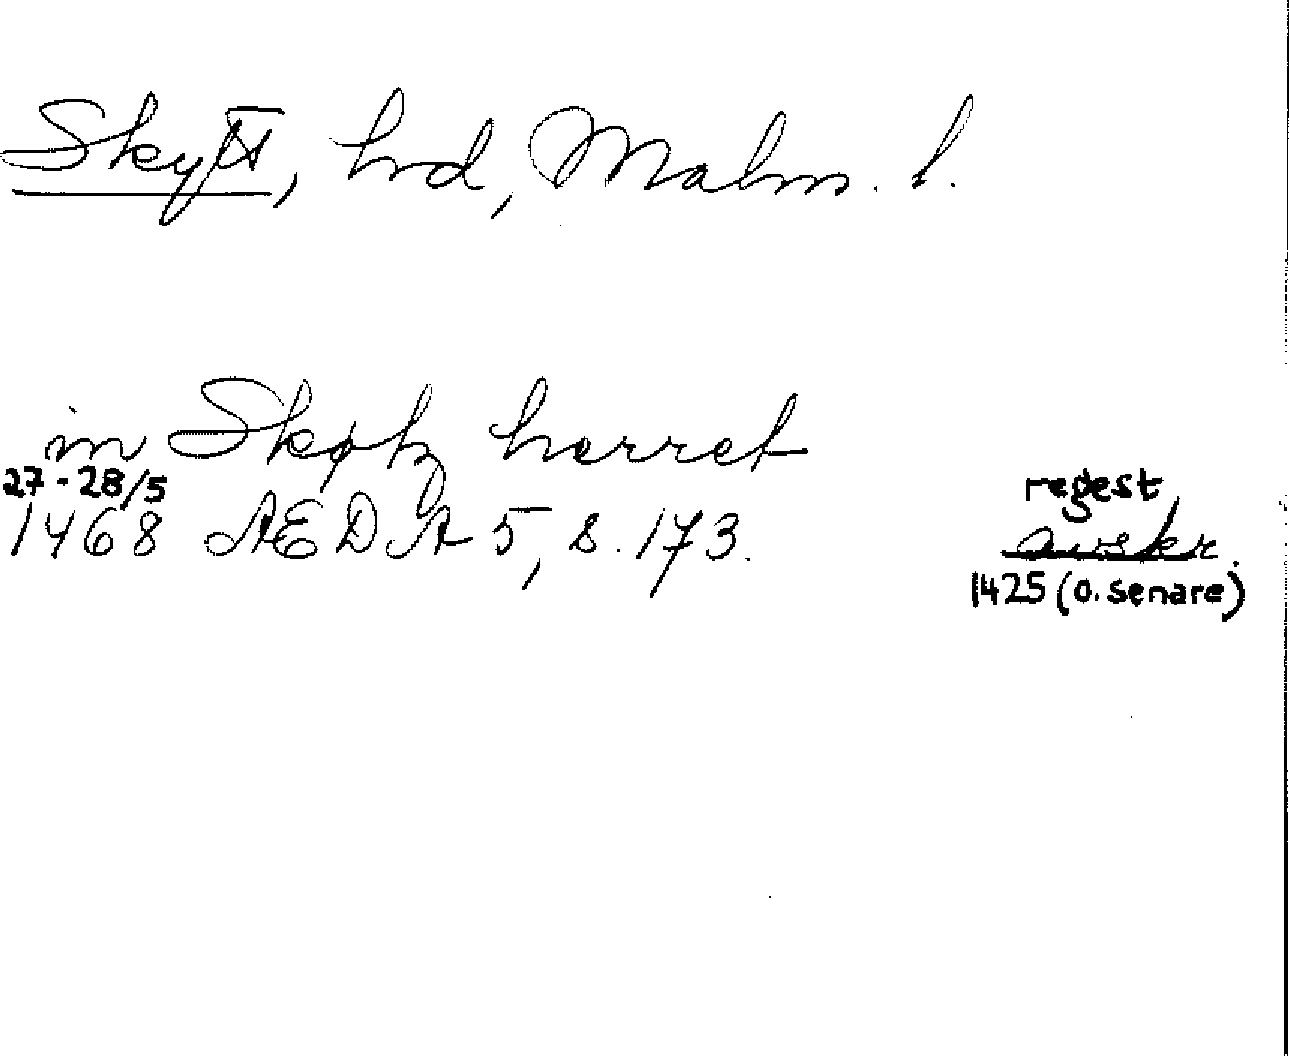 Skytt, hrd, Malm. l.
in Skøtz herret
27-28/5
1468 ÆDA 5, s. 173.
regest
avskr.
1425 (o. senare)